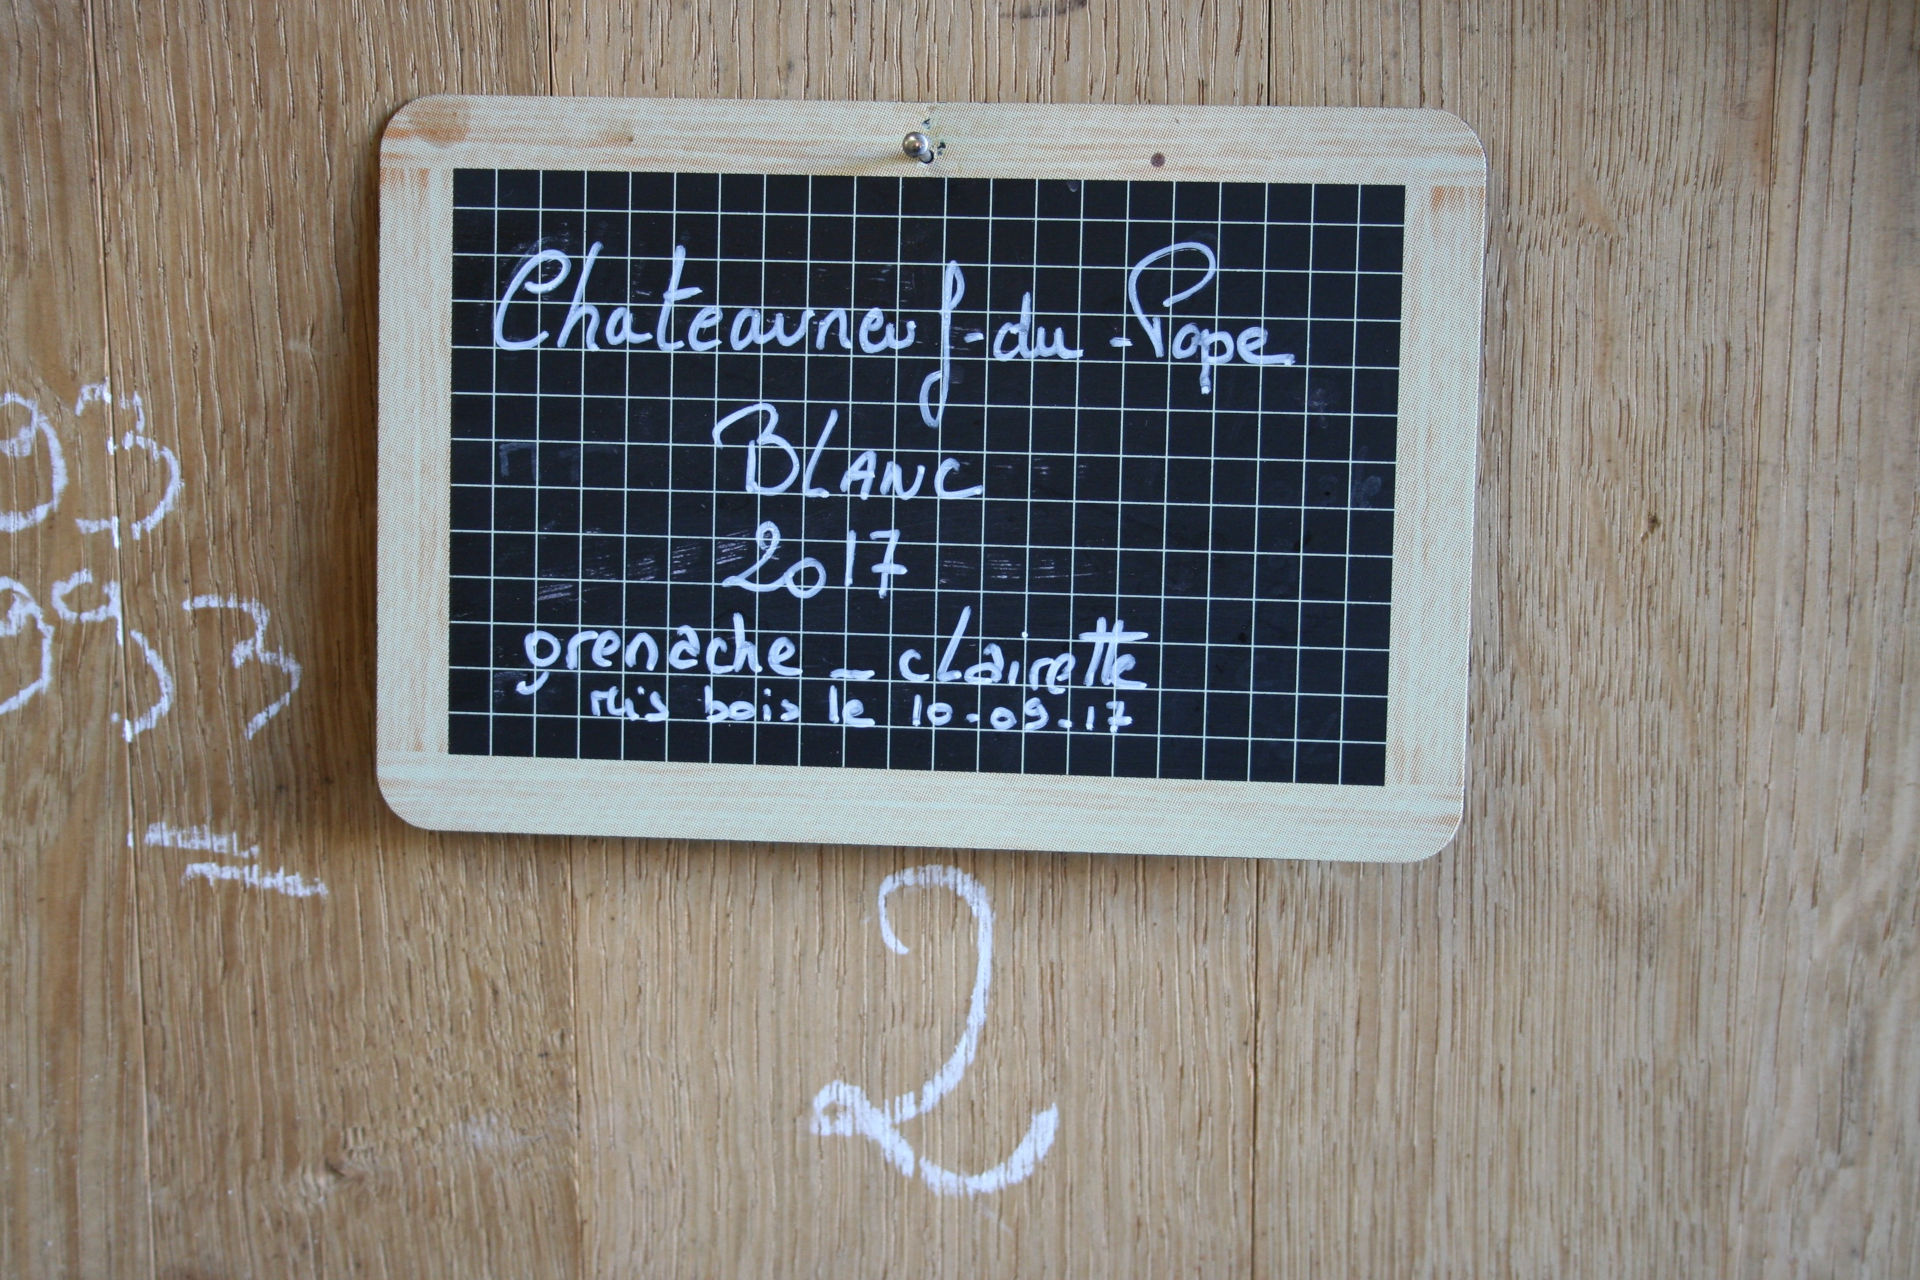 Chateauneuf-du-Pape
BLANC
2017
grenache - clairette
Mis bois le 10-09-17
2